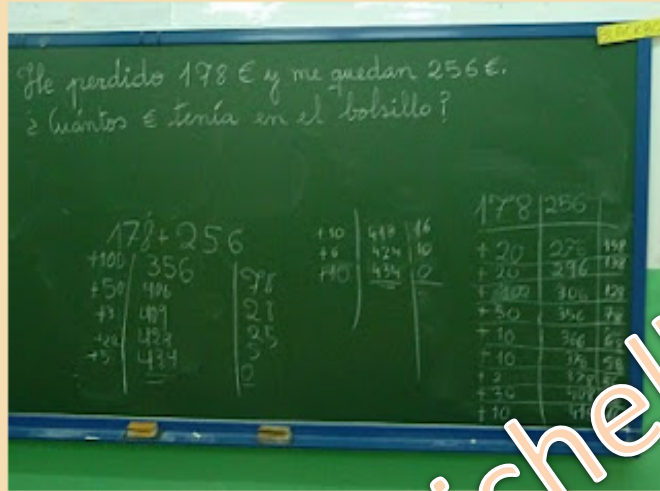 He perdido 178 € y me quedan 256 €.
¿ Cuántos € tenía en el bolsillo?
178 + 256
+100 356 78
+50 406 28
+3 409 25
+20 429 5
+5 434 0
+10 418 16
+6 424 10
+10 434 0
178 256
+20 276 158
+20 296 138
306 128
+50 356 78
+10 366 68
+10 376 58
+2 378
+30
+10
ichel